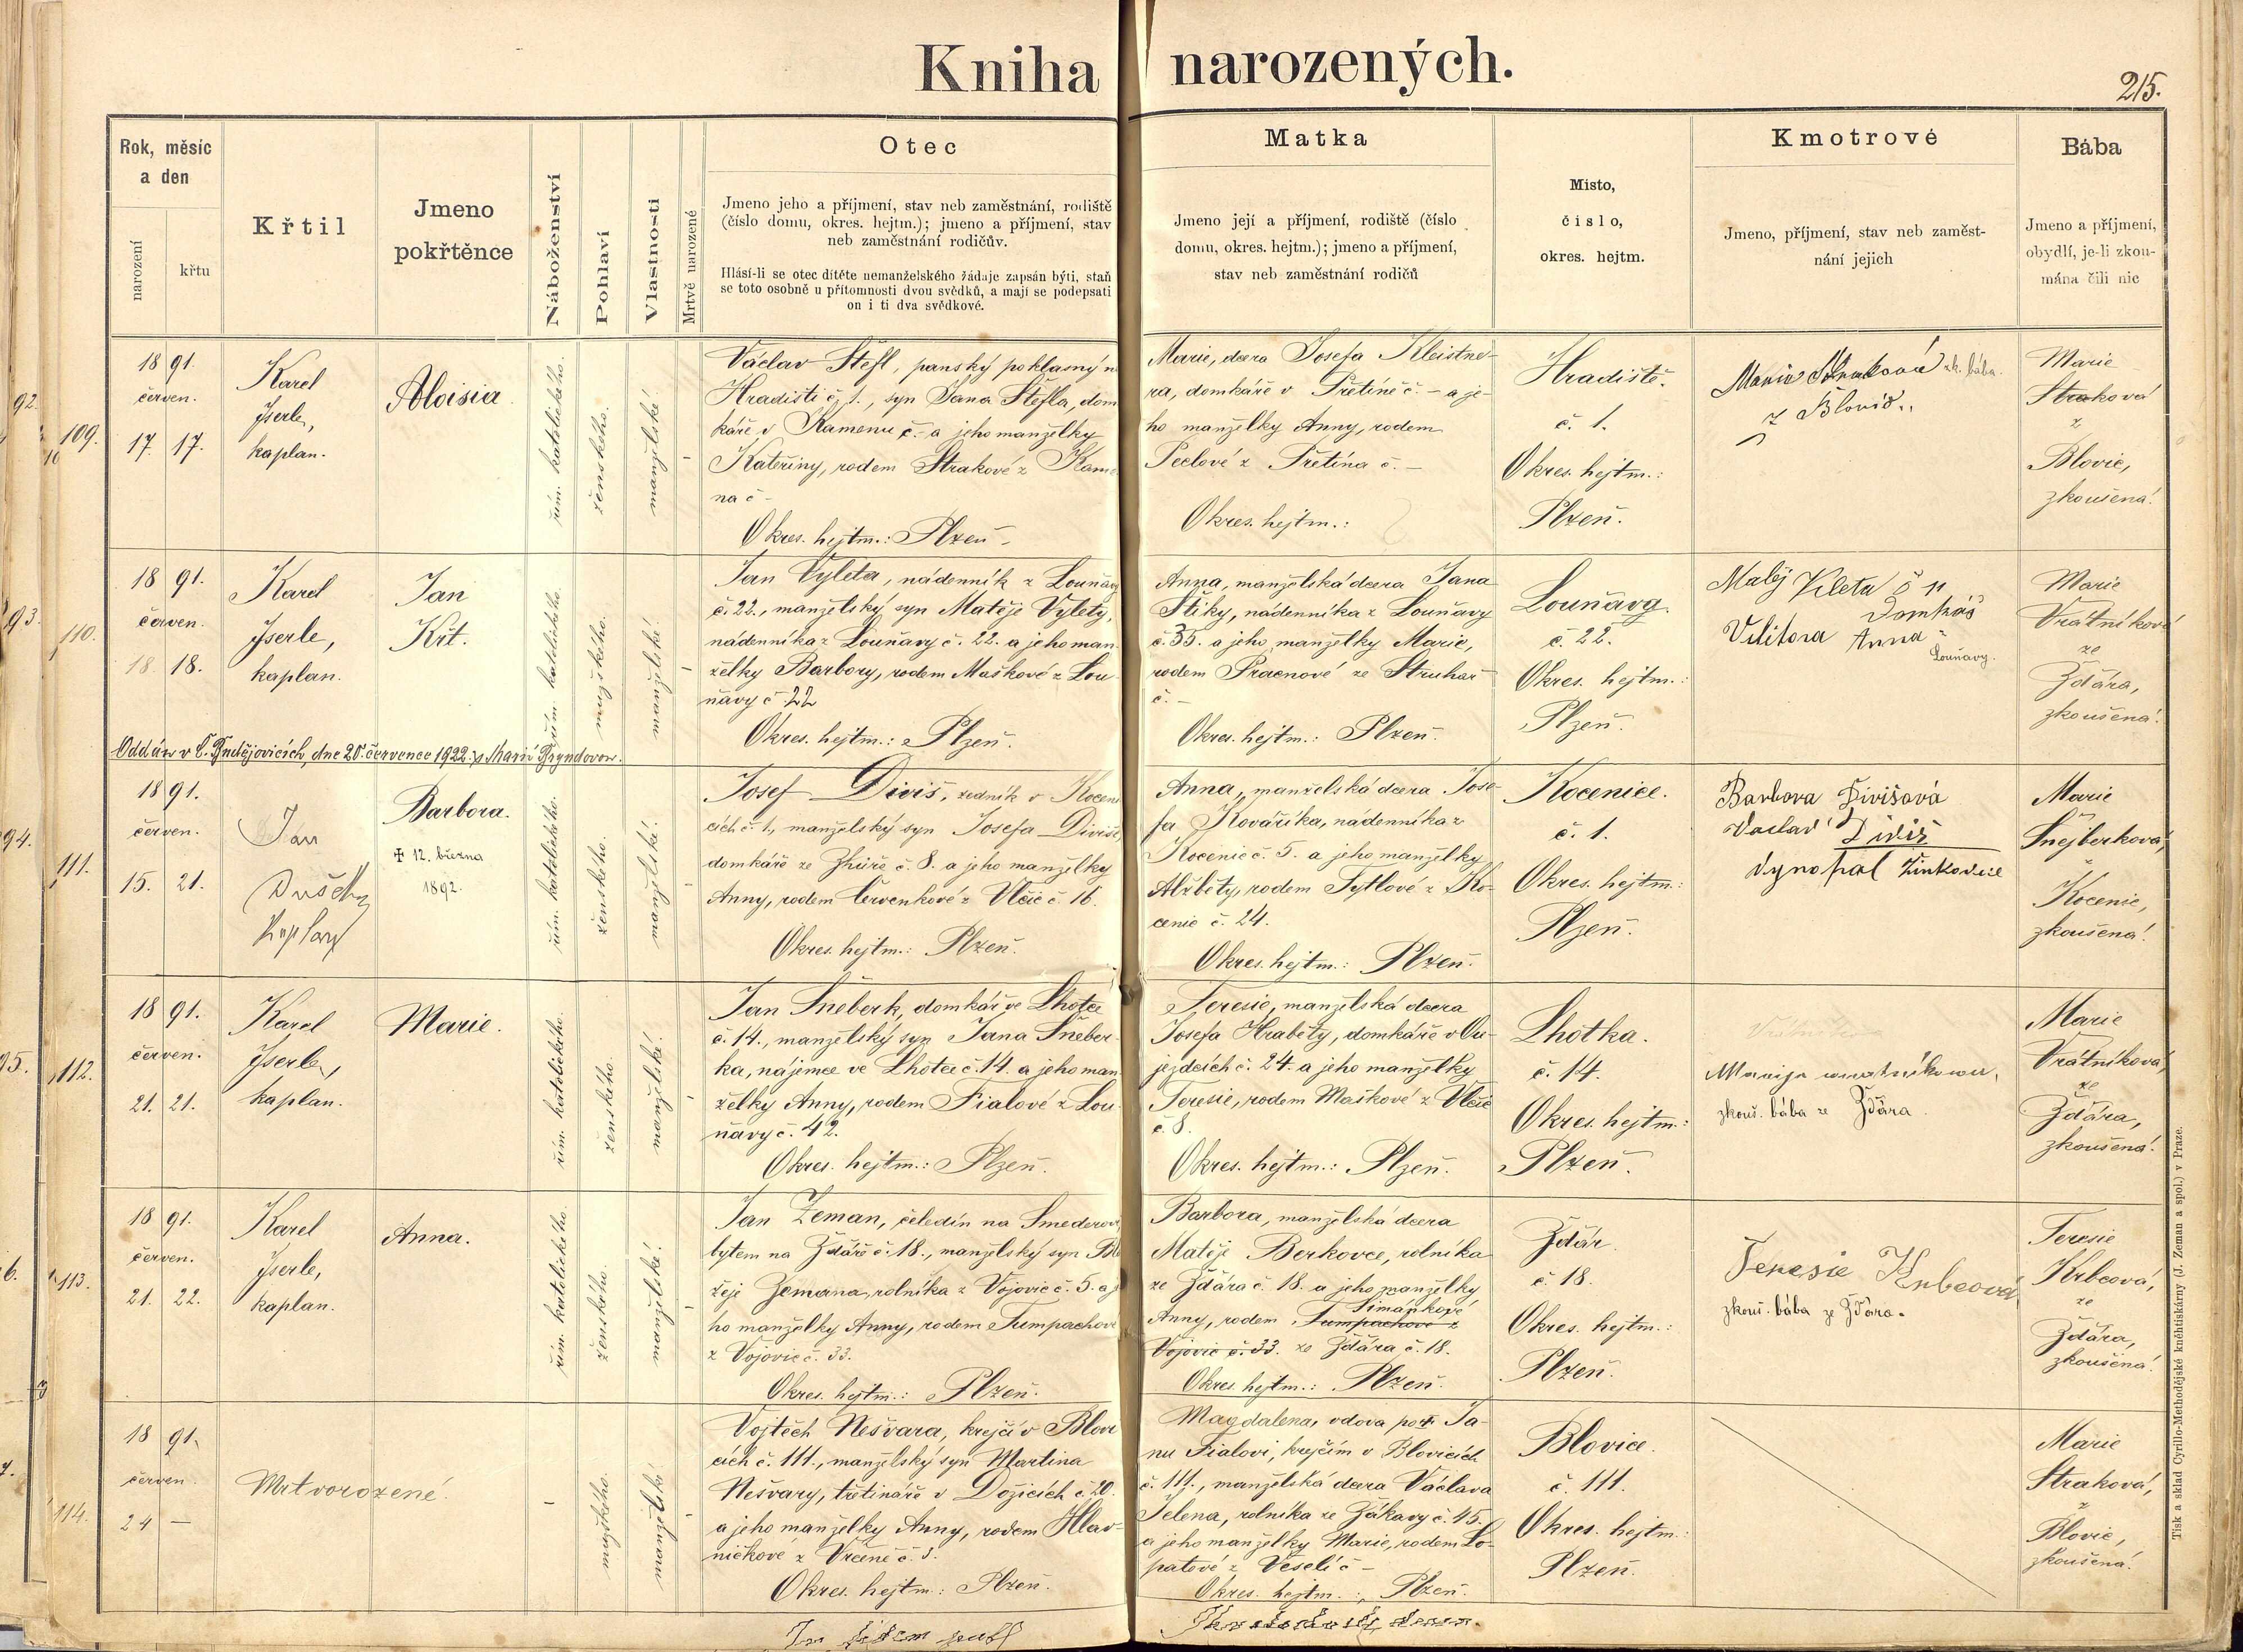 Kniha narozených.
215.
Rok, měsíc
a den
narození
křtu
Křtil
Jmeno
pokřtěnce
Náboženství
Pohlaví
Vlastnosti
Mrtvě narozené
Otec
Jmeno jeho a příjmení, stav neb zaměstnání, rodiště
(číslo domu, okres. hejtm.); jmeno a příjmení, stav
neb zaměstnání rodičův.
Hlásí-li se otec dítěte nemanželského žádaje zapsán býti, staň
se toto osobně u přítomnosti dvou svědků, a mají se podepsati
on i ti dva svědkové.
Matka
Jmeno její a příjmení, rodiště (číslo
domu, okres. hejtm.); jmeno a příjmení,
stav neb zaměstnání rodičů
Místo,
číslo,
okres. hejtm.
Kmotrové
Jmeno, příjmení, stav neb zaměst-
nání jejich
Bába
Jmeno a příjmení,
obydlí, je-li zkou-
mána čili nic
109.
1891.
červen.
17. 17.
Karel
Jserle,
kaplan.
Aloisia
řím. katolického.
ženského.
manželské.
Václav Štefl, panský poklasný
Hradišti č. 1., syn Jana Štefla, dom
káře v Kamenu č. a jeho manželky
Kateřiny, rodem Strakové z Kame
na č –
Okres. hejtm.: Plzeň.
Marie, dcera Josefa Kleistne-
ra, domkáře v Přetíně č. – a je-
ho manželky Anny, rodem
Peclové z Přetína č. –
Okres. hejtm.:
Hradiště.
č. 1.
Okres. hejtm.:
Plzeň.
Marie Straková zk. bába.
z Blovic.
Marie
Straková
z
Blovic,
zkoušená.
110.
1891.
červen.
18. 18.
Karel
Jserle,
kaplan.
Jan
Kř. Vít.
řím. katolického.
mužského.
manželské.
Jan Vyleta, nádenník z Louňavy
č. 22., manželský syn Matěje Vylety,
nádenníka z Louňavy č. 22. a jeho man
želky Barbory, rodem Maškové z Lou
ňavy č. 22
Okres. hejtm.: Plzeň.
Anna, manželská dcera Jana
Štiky, nádenníka z Louňavy
č. 35. a jeho manželky Marie,
rodem Pracnové ze Struhař
č. –
Okres. hejtm.: Plzeň.
Louňavy.
č. 22.
Okres. hejtm.:
Plzeň.
Matěj Vileta č 11
Domkář
Vilitova Anna
Louňavy.
Marie
Vrátníková
ze
Ždára,
zkoušená.
Oddán v Č. Budějovicích, dne 20. července 1922 s Marií Bryndovou.
111.
1891.
červen.
15. 21.
Jan
Dušek
Kaplan
Barbora.
✠ 12. března
1892.
řím. katolického.
ženského.
manželské.
Josef Diviš, zedník v Kocen
cích č. 1., manželský syn Josefa Diviše,
domkáře ze Zhůře č. 8. a jeho manželky
Anny, rodem Červenkové z Vlčic č. 16.
Okres. hejtm.: Plzeň.
Anna, manželská dcera Jose-
fa Kovaříka, nádenníka z
Kocenic č. 5. a jeho manželky
Alžběty, rodem Sytlové z Ko-
cenic č. 24.
Okres. hejtm.: Plzeň.
Kocenice.
č. 1.
Okres. hejtm.:
Plzeň.
Barbora Divišová
Vaclav Diviš
Vynopal Žinkovice
Marie
Šnejberková,
Kocenic,
zkoušená.
112.
1891.
červen.
21. 21.
Karel
Jserle,
kaplan.
Marie.
řím. katolického.
ženského.
manželské.
Jan Šneberk, domkář ve Lhotce
č. 14., manželský syn Jana Šneber-
ka, nájemce ve Lhotce č. 14. a jeho man
želky Anny, rodem Fialové z Lou
ňavy č. 42.
Okres. hejtm.: Plzeň.
Teresie, manželská dcera
Josefa Hraběty, domkáře v Ou-
jezdcích č. 24. a jeho manželky
Teresie, rodem Maškové z Vlčic
č. 8.
Okres. hejtm.: Plzeň.
Lhotka.
č. 14.
Okres. hejtm.:
Plzeň.
Marija wratnikowa,
zkouš. bába ze Žďára.
Marie
Vrátníková,
ze
Ždára,
zkoušená.
113.
1891.
červen.
21. 22.
Karel
Jserle,
kaplan.
Anna.
řím. katolického.
ženského.
manželské.
Jan Zeman, čeledín na Smederov
bytem na Ždáře č. 18., manželský syn Bla
žeje Zemana, rolníka z Vojovic č. 5. a je
ho manželky Anny, rodem Tumpachové
z Vojovic č. 33.
Okres. hejtm.: Plzeň.
Barbora, manželská dcera
Matěje Berkovce, rolníka
ze Ždára č. 18. a jeho manželky
Šimankové
Anny, rodem Tumpachové z
Vojovic č. 33. ze Ždára č. 18.
Okres. hejtm.: Plzeň.
Ždár
č. 18.
Okres. hejtm.:
Plzeň.
Teresie Krbcová
zkouš. bába ze Žďára.
Teresie
Krbcová,
ze
Ždára,
zkoušená.
114.
1891.
červen
24 —
Mrtvorozené.
mužského.
manželský.
Vojtěch Nešvara, krejčí v Blovi
cích č. 111., manželský syn Martina
Nešvary, třetináře v Dožicích č. 20.
a jeho manželky Anny, rodem Hlav-
ničkové z Vrčeně č. 3.
Okres. hejtm.: Plzeň.
Magdalena, vdova po ✠ Ja-
nu Fialovi, krejčím v Blovicích
č. 111., manželská dcera Václava
Jelena, rolníka ze Zákavy č. 45.
a jeho manželky Marie, rodem Lo-
patové z Veselí č –
Okres. hejtm.: Plzeň.
Blovice.
č. 111.
Okres. hejtm.:
Plzeň.
Marie
Straková,
z
Blovic,
zkoušená.
Tisk a sklad Cyrillo-Methodějské knihtiskárny (J. Zeman a spol.) v Praze.